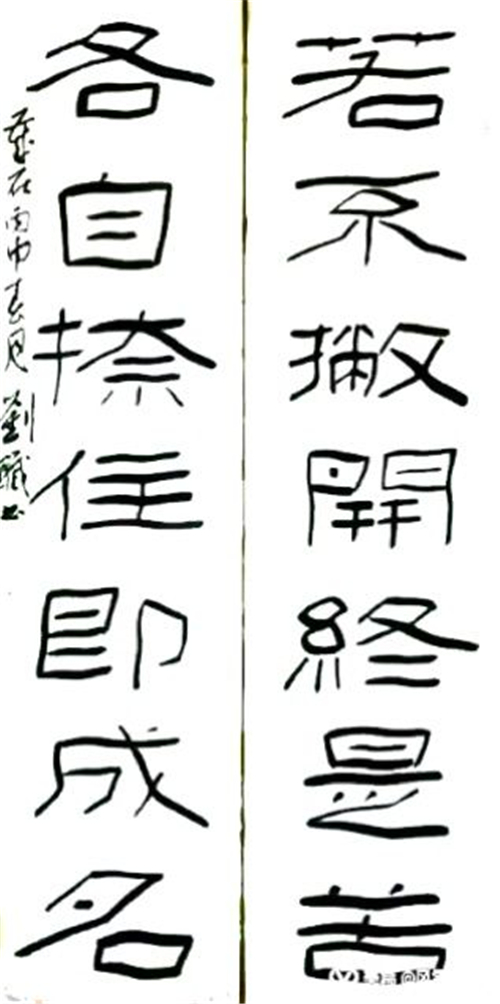 若不撇開終是苦
各自捺住即成名
歲在丙申春月 劉